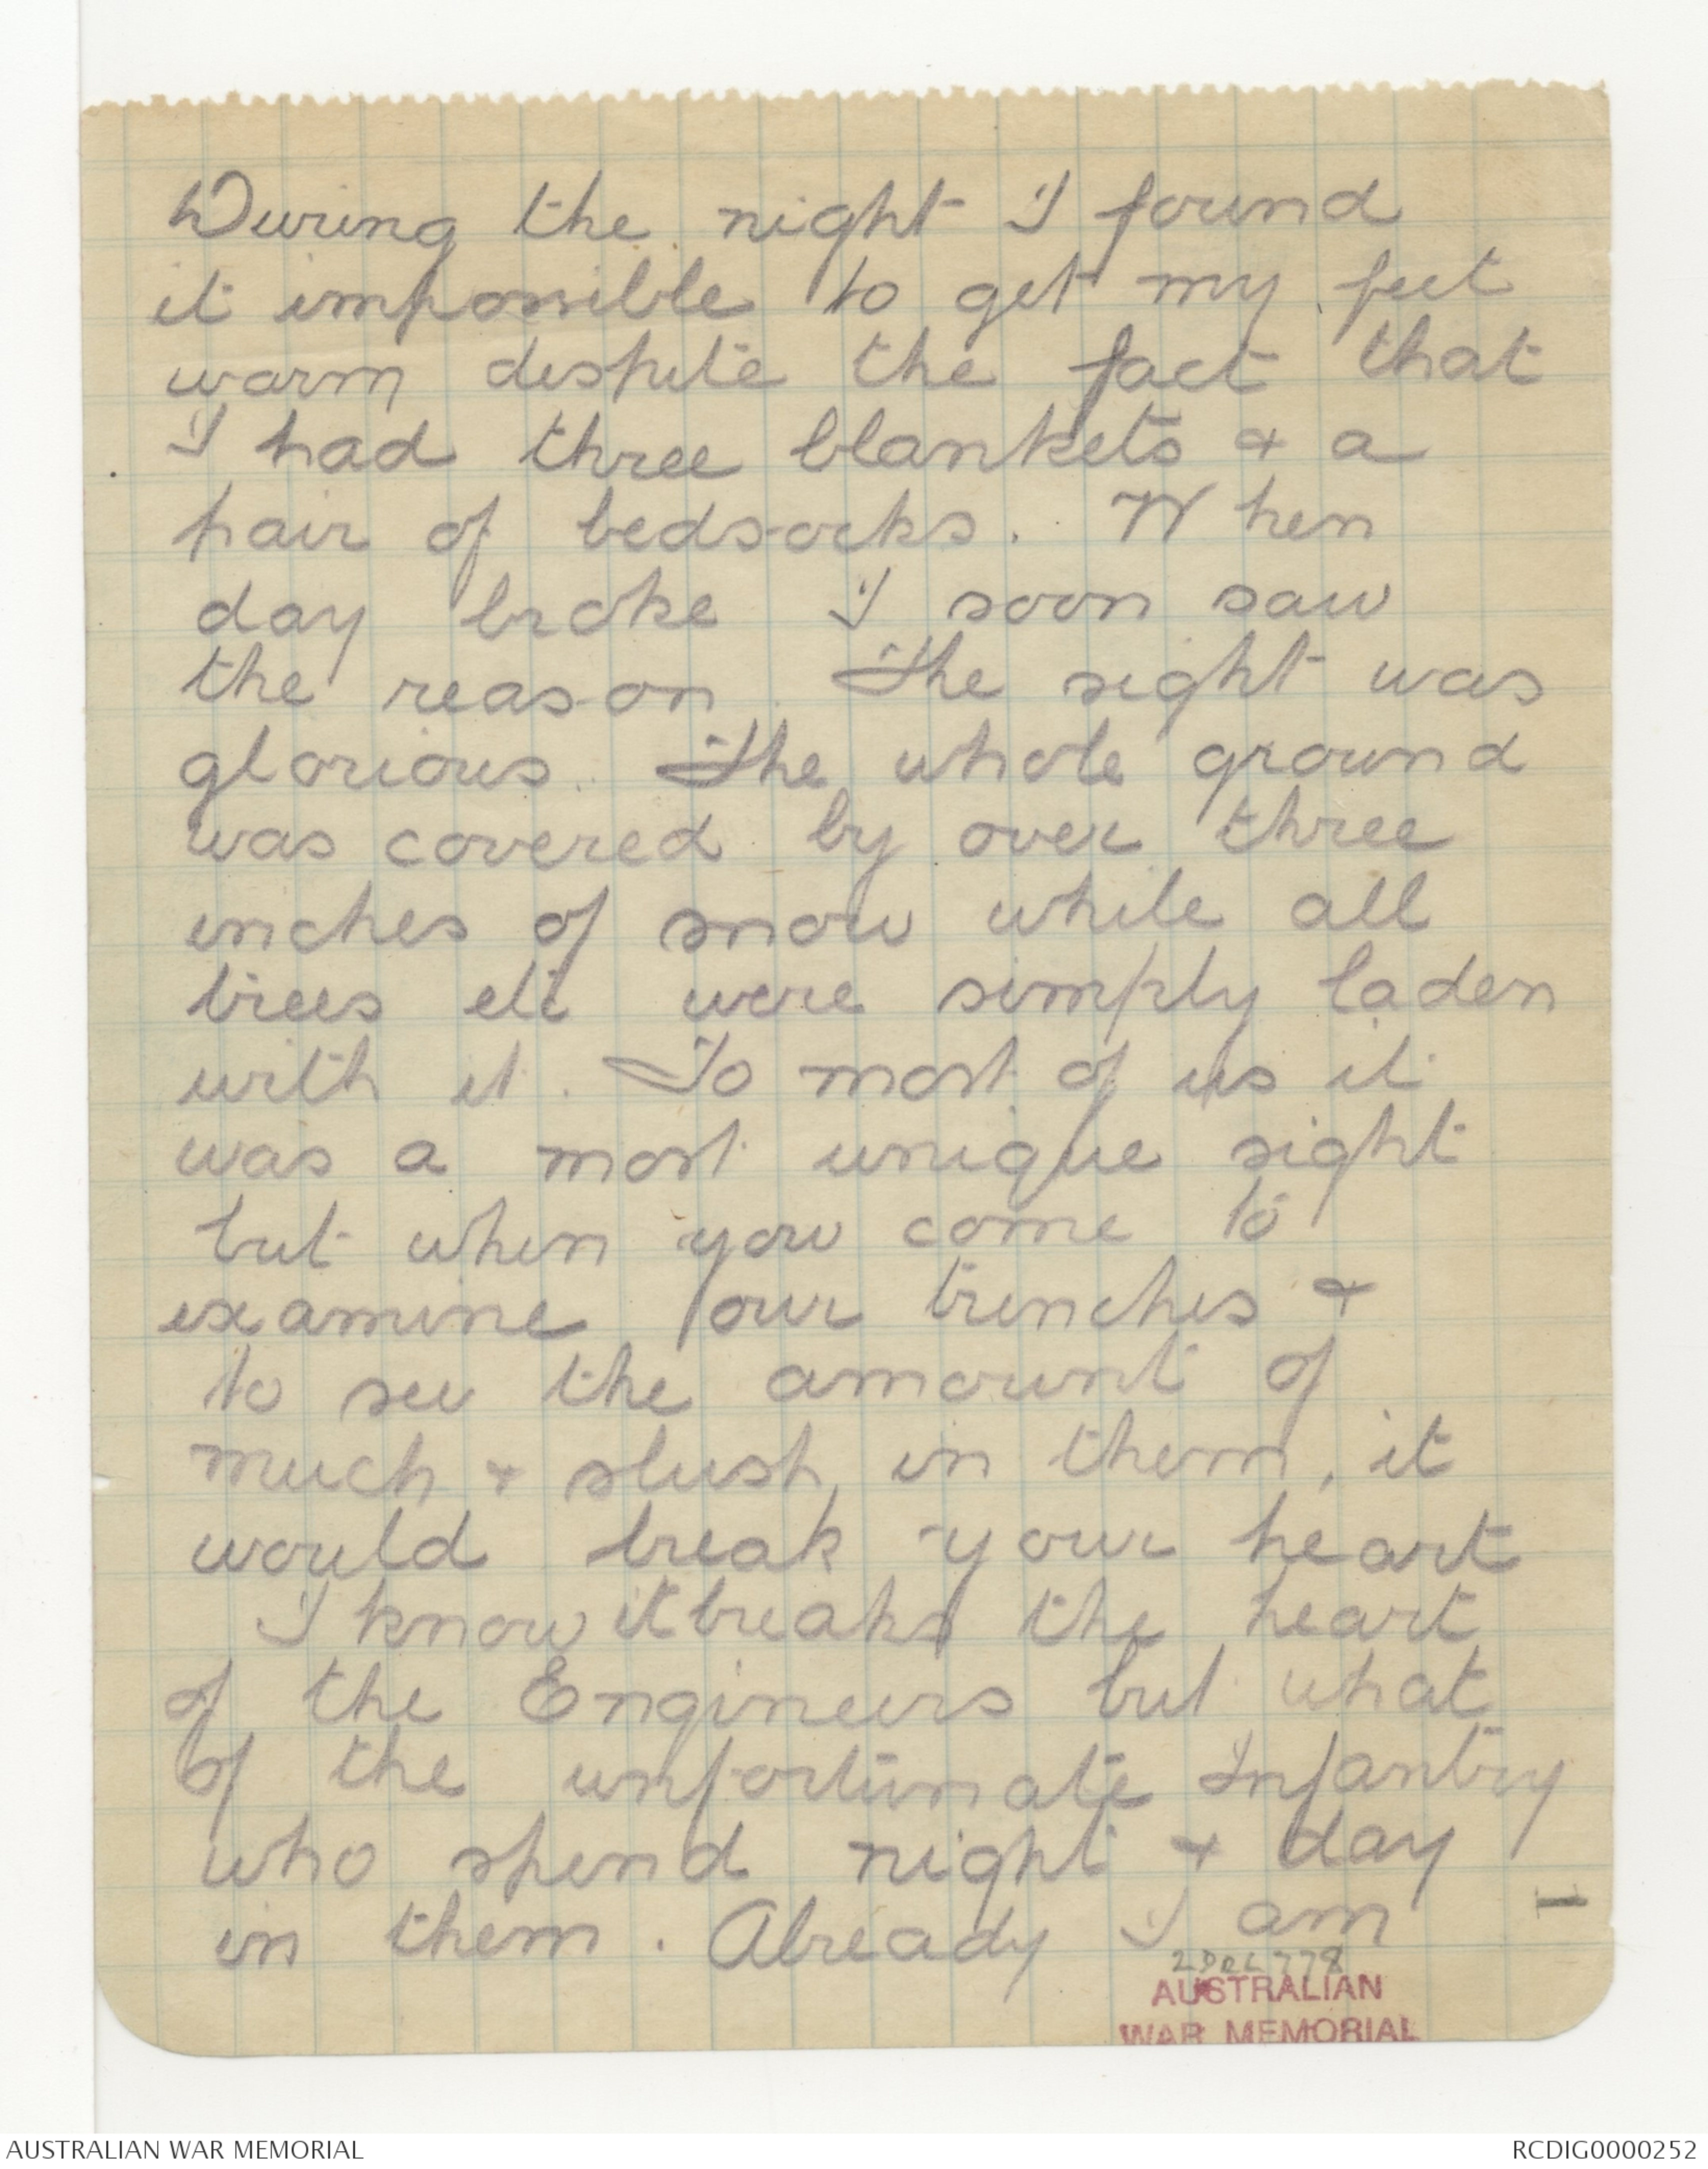 During the night I found
it impossible to get my feet
warm despite the fact that
I had three blankets & a
pair of bedsocks. When
day broke I soon saw
the reason. The sight was
glorious. The whole ground
was covered by over three
inches of snow while all
trees etc were simply laden
with it. To most of us it
was a most unique sight
but when you come to
examine our trenches &
to see the amount of
much & slush in them, it
would break your heart
I know it breaks the heart
of the Engineers but what
of the unfortunate Infantry
who spend night & day
in them. Already I am
2DRL778
AUSTRALIAN
WAR MEMORIAL
1
AUSTRALIAN WAR MEMORIAL
RCDIG0000252